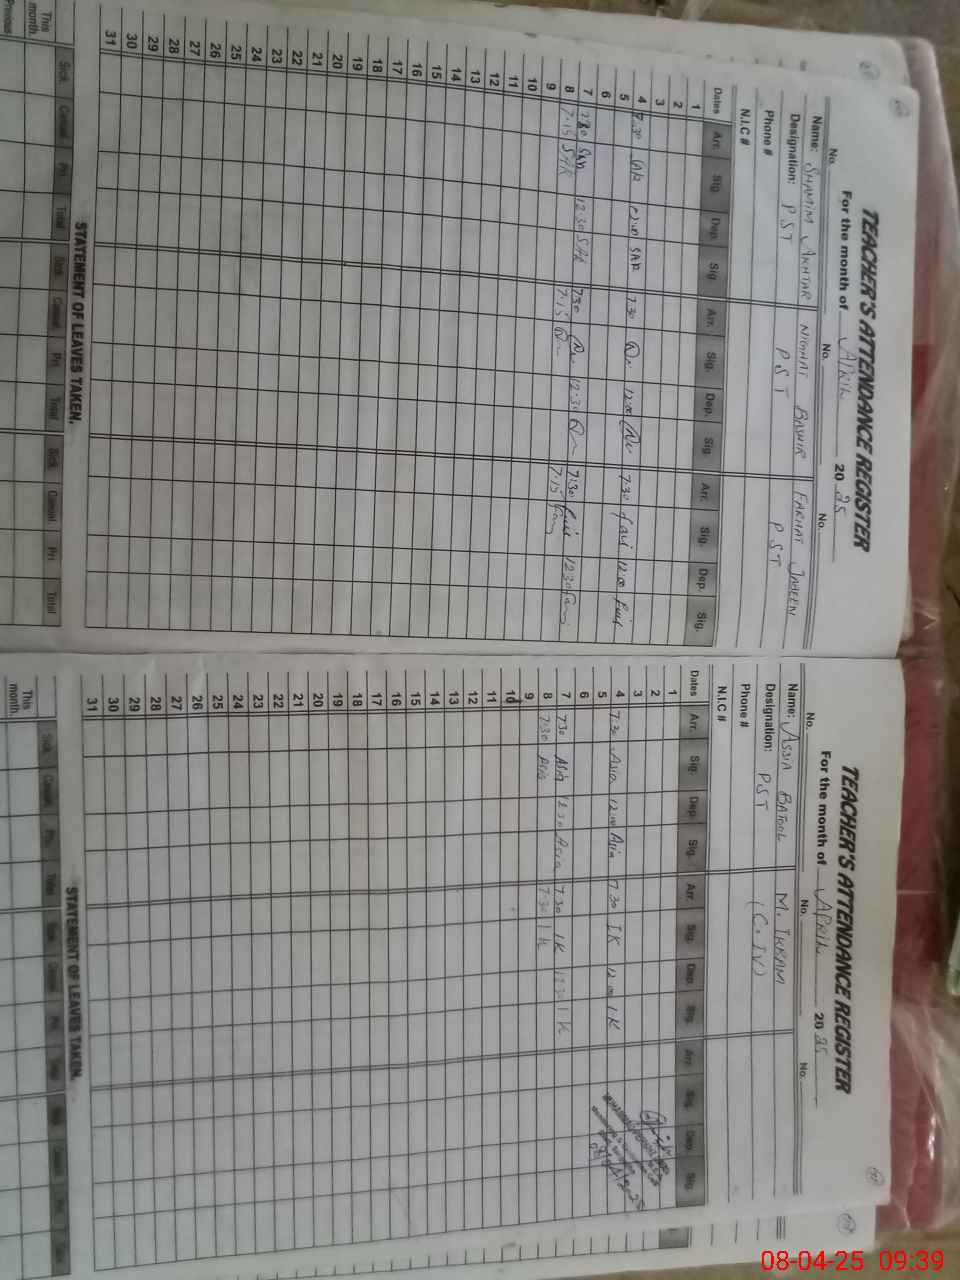 TEACHER'S ATTENDANCE REGISTER
For the month of APRIL 2025
No. No. No.
Name: SHAMIM AKHTAR NIGHAT BASHIR FARHAT JABEEN
Designation: PST PST PST
Phone #
N.I.C #
Dates Arr. Sig. Dep. Sig. Arr. Sig. Dep. Sig. Arr. Sig. Dep. Sig.
1
2
3
4 7:30 SAK 12:00 SAK 7:30 12:00 7:30 12:00
5
6
7 7:30 SAK 12:30 SAK 7:30 12:30 7:30 12:30
8 7:15 SAK 7:15 7:15
9
10
11
12
13
14
15
16
17
18
19
20
21
22
23
24
25
26
27
28
29
30
31
STATEMENT OF LEAVES TAKEN.
Sick Casual Pri Total Sick Casual Pri Total Sick Casual Pri Total
This month.
Previous
TEACHER'S ATTENDANCE REGISTER
For the month of APRIL 2025
No. No. No.
Name: ASSIA BATOOL M. IKRAM
Designation: PST (C.IV)
Phone #
N.I.C #
Dates Arr. Sig. Dep. Sig. Arr. Sig. Dep. Sig. Arr. Sig. Dep. Sig.
1
2
3
4 7:30 Asia 12:00 Asia 7:30 IK 12:00 IK
5
6
7 7:30 Asia 12:30 Asia 7:30 IK 12:30 IK
8 7:30 Asia 7:30 IK
9
10
11
12
13
14
15
16
17
18
19
20
21
22
23
24
25
26
27
28
29
30
31
STATEMENT OF LEAVES TAKEN.
Sick Casual Pri Total Sick Casual Pri Total
This month.
08-04-25 09:39